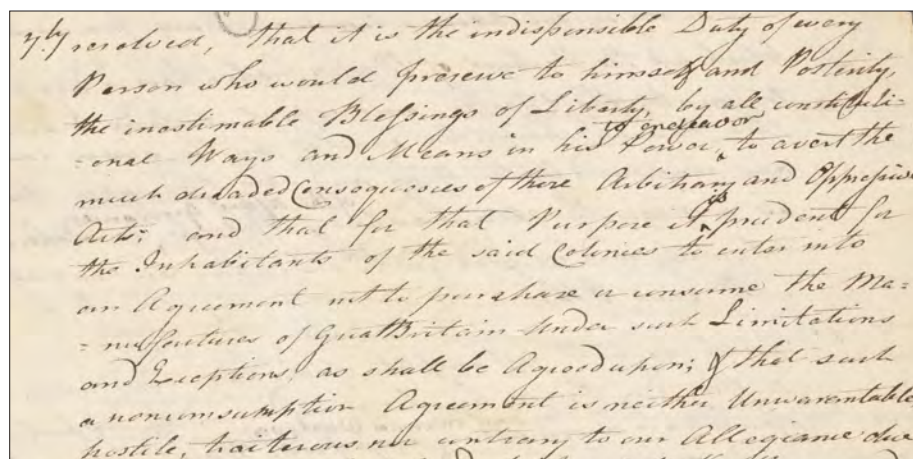 7.ly resolved, that it is the indispensible Duty of every
Person who would preserve to himself and Posterity,
the inestimable Blessings of Liberty, by all constituti=
to endeavor
=onal Ways and Means in his Power, ‸ to avert the
much dreaded Consequences of these Arbitrary and Oppressive
Acts; and that for that Purpose it ‸ is prudent for
the Inhabitants of the said Colonies to enter into
an Agreement not to purchase or consume the Ma=
=nufactures of Great Britain Under such Limitations
and Exceptions as shall be Agreed upon; & that such
a nonconsumption Agreement is neither Unwarentable
hostile, traiterous nor contrary to our Allegiance due